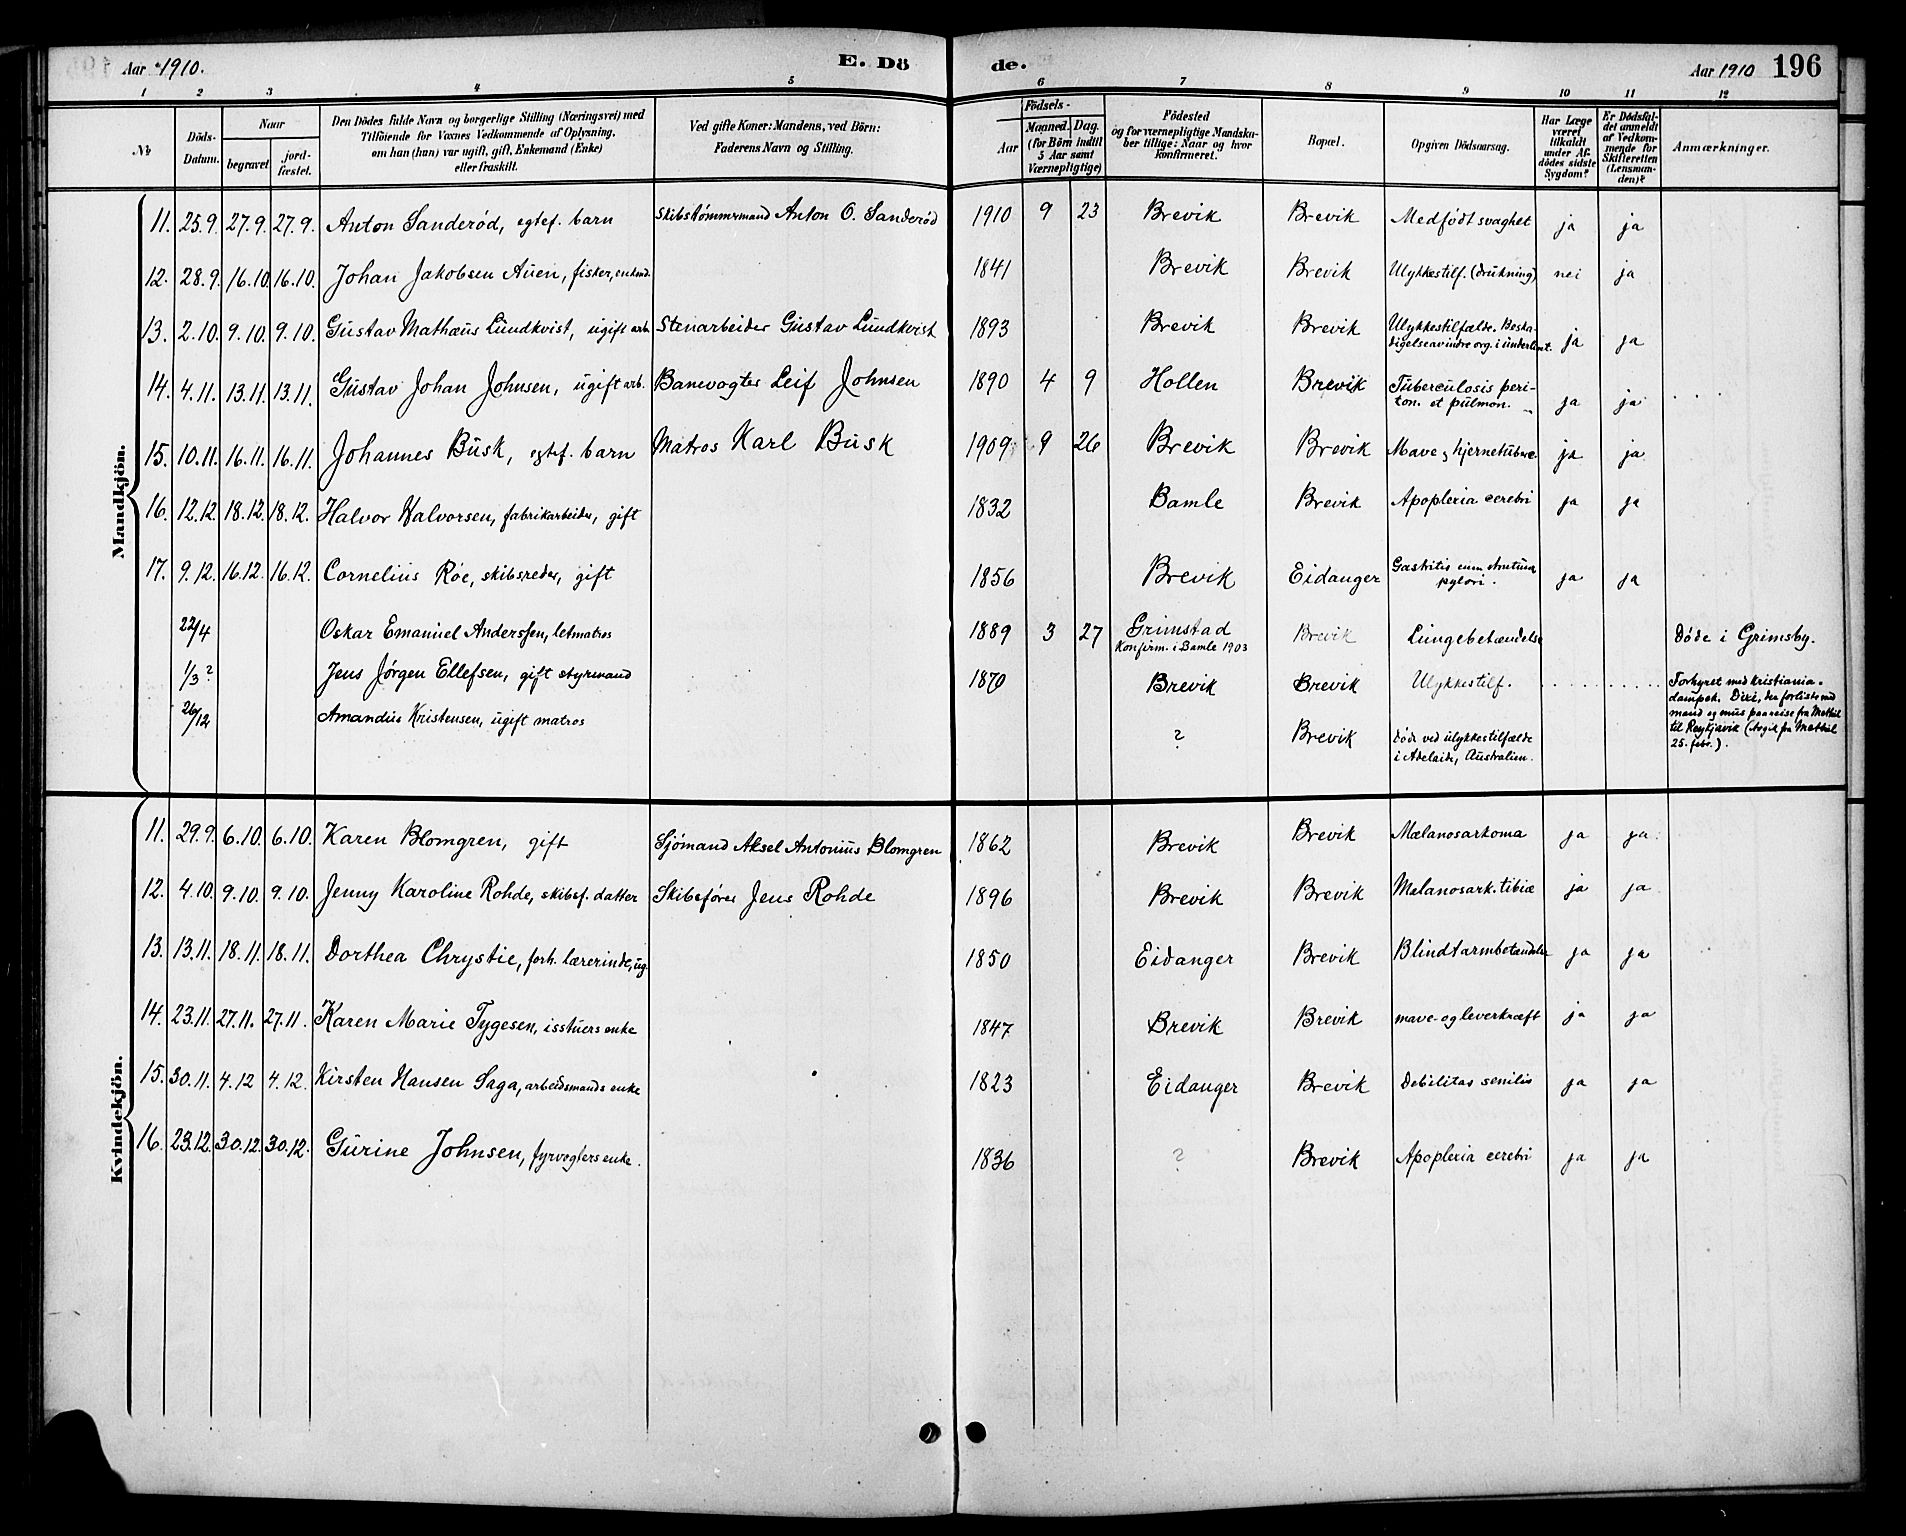 Aar 1910. E. Dö de. Aar 1910 196
1 2 3 4 5 6 7 8 9 10 11 12
No.
Döds-Datum.
Naar
begravet
jord-fæstet.
Den Dödes fulde Navn og borgerlige Stilling (Næringsvei) med
Tilföiende for Voxnes Vedkommende af Oplysning,
om han (hun) var ugift, gift, Enkemand (Enke)
eller fraskilt.
Ved gifte Koner: Mandens, ved Börn:
Faderens Navn og Stilling.
Födsels-
Aar
Maaned. Dag.
(for Börn indtil
5 Aar samt
Værnepligtige)
Födested
og for værnepligtige Mandska-
ber tillige: Naar og hvor
konfirmeret.
Bopæl.
Opgiven Dödsaarsag.
Har Læge
været
tilkaldt
under Af-
dödes sidste
Sygdom?
Er Dödsfal-
det anmeldt
af Vedkom-
mende for
Skifteretten
(Lensman-
den)?
Anmærkninger.
Mandkjön.
11. 25.9. 27.9. 27.9. Anton Sanderød, egtef. barn Skibstømmermand Anton O. Sanderød 1910 9 23 Brevik Brevik Medfødt svaghet ja ja
12. 28.9. 16.10. 16.10. Johan Jakobsen Auen, fisker, enkmd. 1841 Brevik Brevik Ulykkestilf. (drukning) nei ja
13. 2.10. 9.10. 9.10. Gustav Mathæus Lundkvist, ugift arb. Stenarbeider Gustav Lundkvist 1893 Brevik Brevik Ulykkestilfælde. Beska-
digelse av indre org. i underlivet. ja ja
14. 4.11. 13.11. 13.11. Gustav Johan Johnsen, ugift arb. Banevogter Leif Johnsen 1890 4 9 Hollen Brevik Tuberculosis peri-
ton. et pulmon. ja ja
15. 10.11. 16.11. 16.11. Johannes Busk, egtef. barn Matros Karl Busk 1909 9 26 Brevik Brevik Mave og hjernetuberc. ja ja
16. 12.12. 18.12. 18.12. Halvor Halvorsen, fabrikarbeider, gift 1832 Bamle Brevik Apoplexia cerebri ja ja
17. 9.12. 16.12. 16.12. Cornelius Røe, skibsreder, gift 1856 Brevik Eidanger Gastritis cum
pylori. ja ja
22/4 Oskar Emanuel Anderssen, letmatros 1889 3 27 Grimstad
Konfirm. i Bamle 1903 Brevik Lungebetændelse Døde i Grimsby.
1/3 ? Jens Jørgen Ellefsen, gift styrmand 1870 Brevik Brevik Ulykkestilf. Forhyret med kristiania-
dampsk. Dixi, der forliste med
mand og mus paa reise fra Methil
til Reykjavik (Avgik fra Methil
25. febr.).
26/12 Amandus Kristensen, ugift matros ? Brevik Døde ved ulykkestilfælde
i Adelaide, Australien.
Kvindekjön.
11. 29.9. 6.10. 6.10. Karen Blomgren, gift Sjømand Aksel Antonius Blomgren 1862 Brevik Brevik Mælanosarkoma ja ja
12. 4.10. 9.10. 9.10. Jenny Karoline Rohde, skibsf. datter Skibsfører Jens Rohde 1896 Brevik Brevik Melanosark. tibiæ ja ja
13. 13.11. 18.11. 18.11. Dorthea Chrystie, forh. lærerinde, ug. 1850 Eidanger Brevik Blindtarmbetændelse ja ja
14. 23.11. 27.11. 27.11. Karen Marie Tygesen, isstuers enke 1847 Brevik Brevik mave- og leverkræft ja ja
15. 30.11. 4.12 4.12. Kirsten Hansen Saga, arbeidsmands enke 1823 Eidanger Brevik Debilitas senilis ja ja
16. 23.12. 30.12. 30.12. Gurine Johnsen, fyrvogters enke. 1836 ? Brevik Apoplexia cerebri ja ja